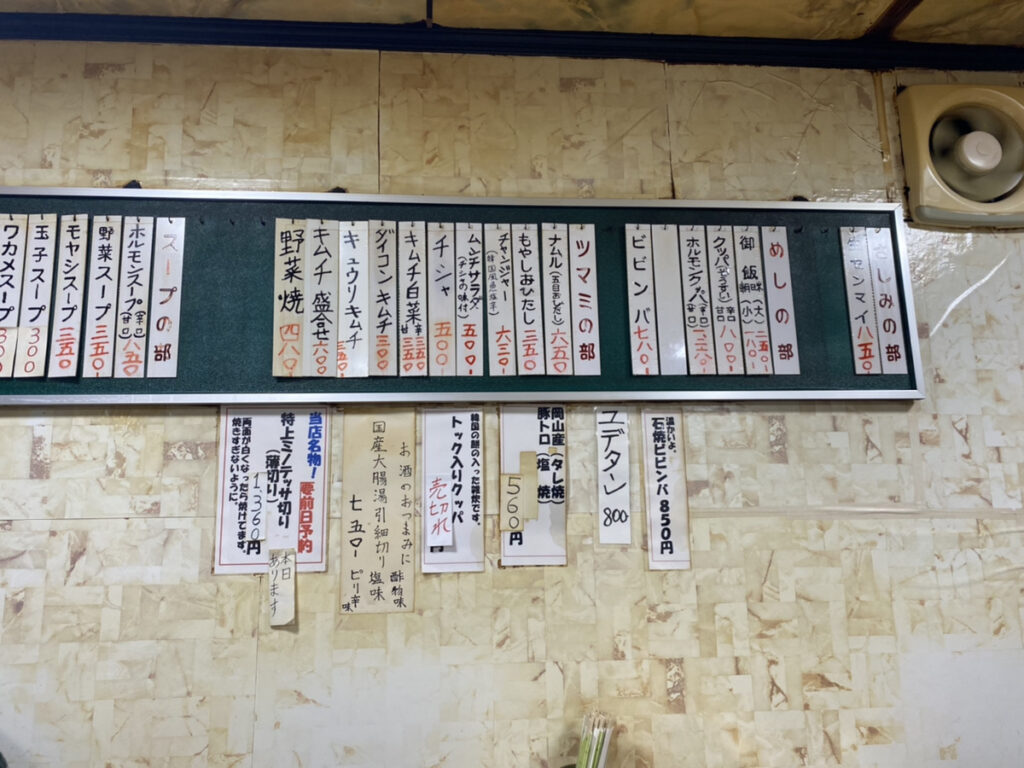 さしみの部
生センマイ 八五〇
めしの部
御飯
クッパ
ホルモンクッパ
ビビンバ 七八〇
ツマミの部
ナムル 六五〇
もやしおひたし 三五〇
チャンジャー 六三〇
ムンチサラダ(チシャの味付) 五〇〇
チシャ 五〇〇
キムチ白菜 辛 三五〇 甘 三五〇
ダイコンキムチ 三〇〇
キュウリキムチ 三五〇
キムチ盛合せ 六八〇
野菜焼 四八〇
スープの部
ホルモンスープ(辛口)(甘口) 八五〇
野菜スープ 三五〇
モヤシスープ 三五〇
玉子スープ 300
ワカメスープ
温かいよ。
石焼ビビンバ 850円
ユデタン 800
岡山産
豚トロ(タレ焼)(塩焼)
560円
韓国の餅の入った雑炊です。
トック入りクッパ
売切れ
お酒のおつまみに
国産大腸湯引細切り 酢物味 塩味 ピリ辛味
七五〇
当店名物!要前日予約
特上ミノテッサ切り
(薄切り)
1,360円
両面が白くなったら焼けてます。
焼きすぎないように。
本日
あります